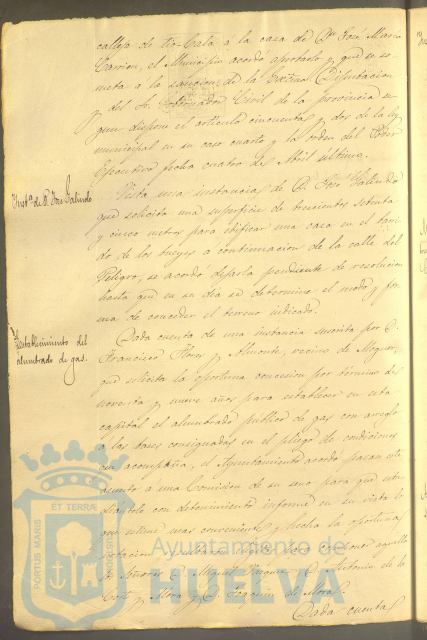 calleja de tio Cala á la casa de Dn José Maria
Carrion, el Municipio acordó aceptarlo y que se so-
meta á la sancion de la Excma Diputacion
y del Sr. Gobernador Civil de la provincia se-
gun dispone el artículo cincuenta y dos de la ley
municipal en su caso cuarto y la orden del Poder
Ejecutivo fecha cuatro de Abril último.
Instª de D. José Galindo
Vista una instancia de D. José Galindo
que solicita una superficie de trescientos setenta
y cinco metros para edificar una casa en el barri-
do de los bueyes á continuacion de la calle del
Peligro, se acordó dejarla pendiente de resolucion
hasta que en su dia se determine el modo y for-
ma de conceder el terreno indicado.
Establecimiento del
alumbrado de gas.
Dada cuenta de una instancia suscrita por D.
Francisco Flores y Almonte, vecino de Moguer,
que solicita la oportuna concesion por término de
noventa y nueve años para establecer en esta
capital el alumbrado público de gas con arreglo
á las bases consignadas en el pliego de condiciones
que acompaña, el Ayuntamiento acordó pasar este
asunto á una Comision de su seno para que estu-
diandolo con detenimiento informe en su vista lo
que estime mas conveniente y hecha la oportuna
votacion
á Señores D. Miguel Vazquez, D. Antonio de la
Corte y Mora y D. Joaquin de Mora.
Dada cuenta
PORTUS MARIS ET TERRÆ CUSTODIA
Ayuntamiento de
HUELVA